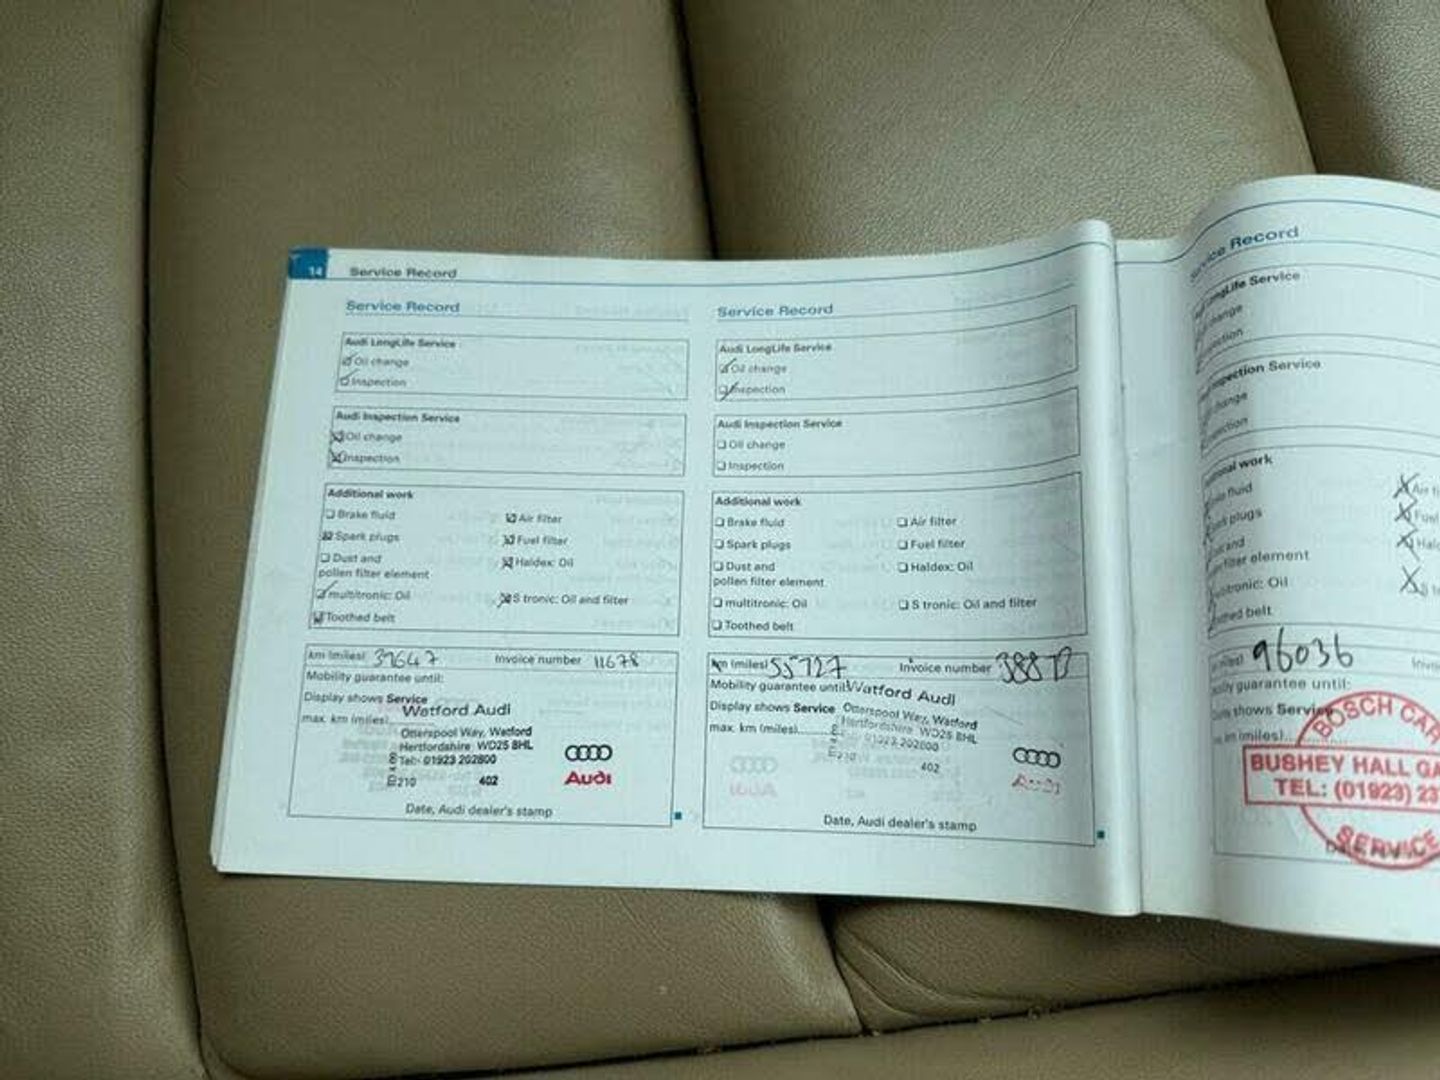 14 Service Record
Service Record
Audi LongLife Service
Oil change
Inspection
Audi Inspection Service
Oil change
Inspection
Additional work
Brake fluid
Air filter
Spark plugs
Fuel filter
Dust and
pollen filter element
Haldex: Oil
multitronic: Oil
S tronic: Oil and filter
Toothed belt
km (miles) 37647 Invoice number 11678
Mobility guarantee until:
Display shows Service
max. km (miles)
Watford Audi
Otterspool Way, Watford
Hertfordshire WD25 8HL
Tel: 01923 202800
210 402
Audi
Date, Audi dealer's stamp
Service Record
Audi LongLife Service
Oil change
Inspection
Audi Inspection Service
Oil change
Inspection
Additional work
Brake fluid
Air filter
Spark plugs
Fuel filter
Dust and
pollen filter element
Haldex: Oil
multitronic: Oil
S tronic: Oil and filter
Toothed belt
km (miles) 55727 Invoice number
Mobility guarantee until:
Display shows Service
max. km (miles)
Watford Audi
Otterspool Way, Watford
Hertfordshire WD25 8HL
01923 202800
210
402
Audi
Date, Audi dealer's stamp
Record
LongLife Service
Service
fluid
plugs
and
element
Oil
belt
96036
guarantee until:
shows Service
km (miles)
BOSCH CAR
BUSHEY HALL
TEL: (01923)
SERVICE